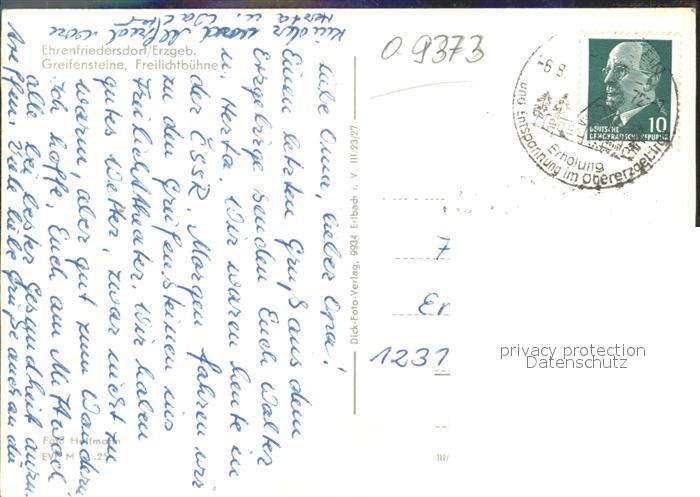 Ehrenfriedersdorf/Erzgeb.
Greifensteine, Freilichtbühne
Liebe Oma, lieber Opa!
Einen letzten Gruß aus dem
Erzgebirge senden Euch Walter
u. Herta. Wir waren heute in
der ČSSR. Morgen fahren wir
zu den Greifensteinen ins
Freilichttheater. Wir haben
gutes Wetter, zwar nicht zu
warm, aber gut zum Wandern.
Ich hoffe, Euch am Mittwoch
alle bei bester Gesundheit anzu-
treffen. Viele liebe Grüße auch an die
Kinder und
Herta u. Walter
Foto Hoffmann
Dick-Foto-Verlag, 9934 Erlbach i. V. III/23/27
09373
-6.9.
Erholung
und Entspannung im Obererzgebirge
DEUTSCHE
DEMOKRATISCHE REPUBLIK
10
1231
III/
privacy protection
Datenschutz